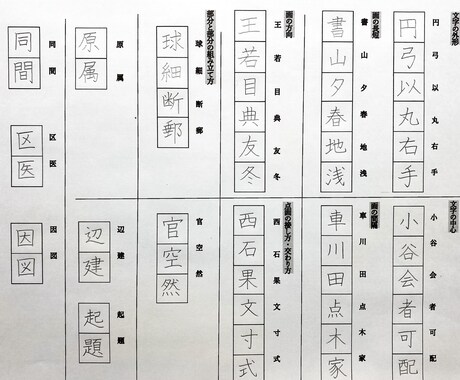 文字の外形
円弓以丸右手
円弓以丸右手
画の長短
書山夕春地浅
書山夕春地浅
画の方向
王若目典友冬
王若目典友冬
部分と部分の組み立て方
球細断郵
球細断郵
原属
原属
同間
同間
区医
区医
文字の中心
小谷会者可配
小谷会者可配
画の間隔
車川田点木家
車川田点木家
点画の接し方・交わり方
西石果文寸式
西石果文寸式
官空然
官空然
辺建
辺建
起題
起題
因図
因図